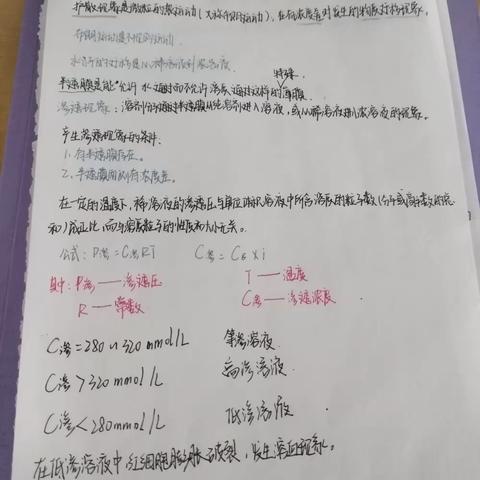 扩散现象是微粒的热运动(又称布朗运动),在有浓度差时发生的物质迁移现象。
布朗运动是不规则运动.
半透膜是能"允许水通过而不允许溶质通过这样的特殊薄膜
渗透现象:溶剂分子通过半透膜从纯溶剂进入溶液,或从稀溶液进入浓溶液的现象。
产生渗透现象的条件.
1. 有半透膜存在。
2. 半透膜两侧有浓度差。
在一定的温度下,稀溶液的渗透压与单位体积溶液中所含溶质的粒子数(分子或离子数的总
和)成正比,而与溶质粒子的性质和大小无关。
公式:P渗=C渗RT C渗=CB×i
其中:P渗——渗透压 T——温度
R——常数 C渗——渗透浓度
C渗=280~320mmol/L 等渗溶液
C渗>320mmol/L 高渗溶液.
C渗<280mmol/L 低渗溶液.
在低渗溶液中红细胞膨胀破裂,发生溶血现象。